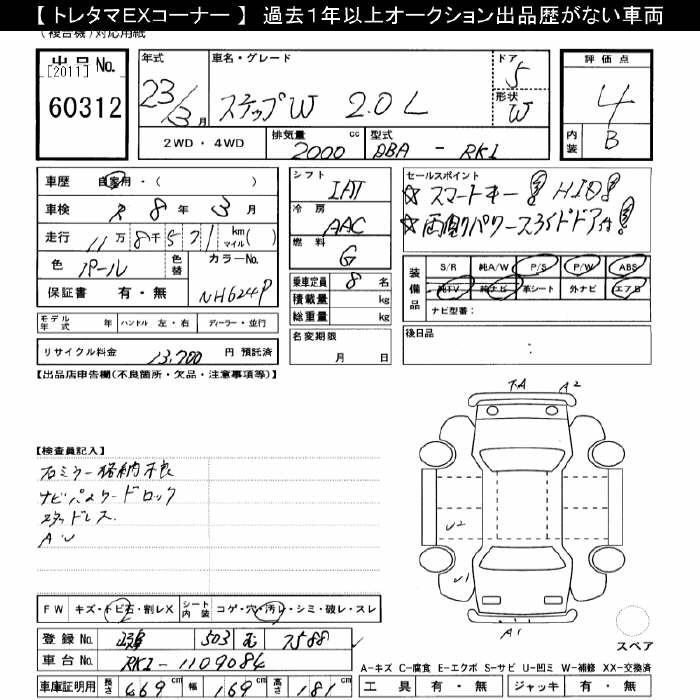 【 トレタマEXコーナー 】 過去1年以上オークション出品歴がない車両
(複合機)対応用紙
出品 No.
[2011]
60312
年式
23/3月
車名・グレード
ステップW 2.0L
ドア
5
形状
W
評価点
4
内装
B
2WD・4WD
排気量
2000 cc
型式
DBA - RK1
車歴 自家用・( )
車検 8年 3月
走行 11万 8千 571 km マイル( )
色 パール
色替
カラーNo.
NH624P
保証書 有・無
シフト
IAT
冷房
AAC
燃料
G
乗車定員 8 名
積載量 kg
総重量 kg
名変期限
月 日
セールスポイント
☆ スマートキー! HID!
☆ 両側パワースライドドア付!
装備品
S/R 純A/W P/S P/W ABS
純TV 純ナビ 革シート 外ナビ エアB
ナビ型番:
後日品
:
モデル年式 年 ハンドル 左・右 ディーラー・並行
リサイクル料金 13,700 円 預託済
【出品店申告欄(不良箇所・欠品・注意事項等)】
【検査員記入】
右ミラー格納不良
ナビパスワードロック
スタッドレス.
AU
FW キズ・トビ石・割レX
シート内装 コゲ・穴・汚レ・シミ・破レ・スレ
登録No. 503 む 7588
車台No. RK1-1109084
車庫証明用 長さ 469 cm 幅 169 cm 高さ 181 cm
TA
A2
U2
U1
A1
スペア
A-キズ C-腐食 E-エクボ S-サビ U-凹ミ W-補修 XX-交換済
工具 有・無 ジャッキ 有・無